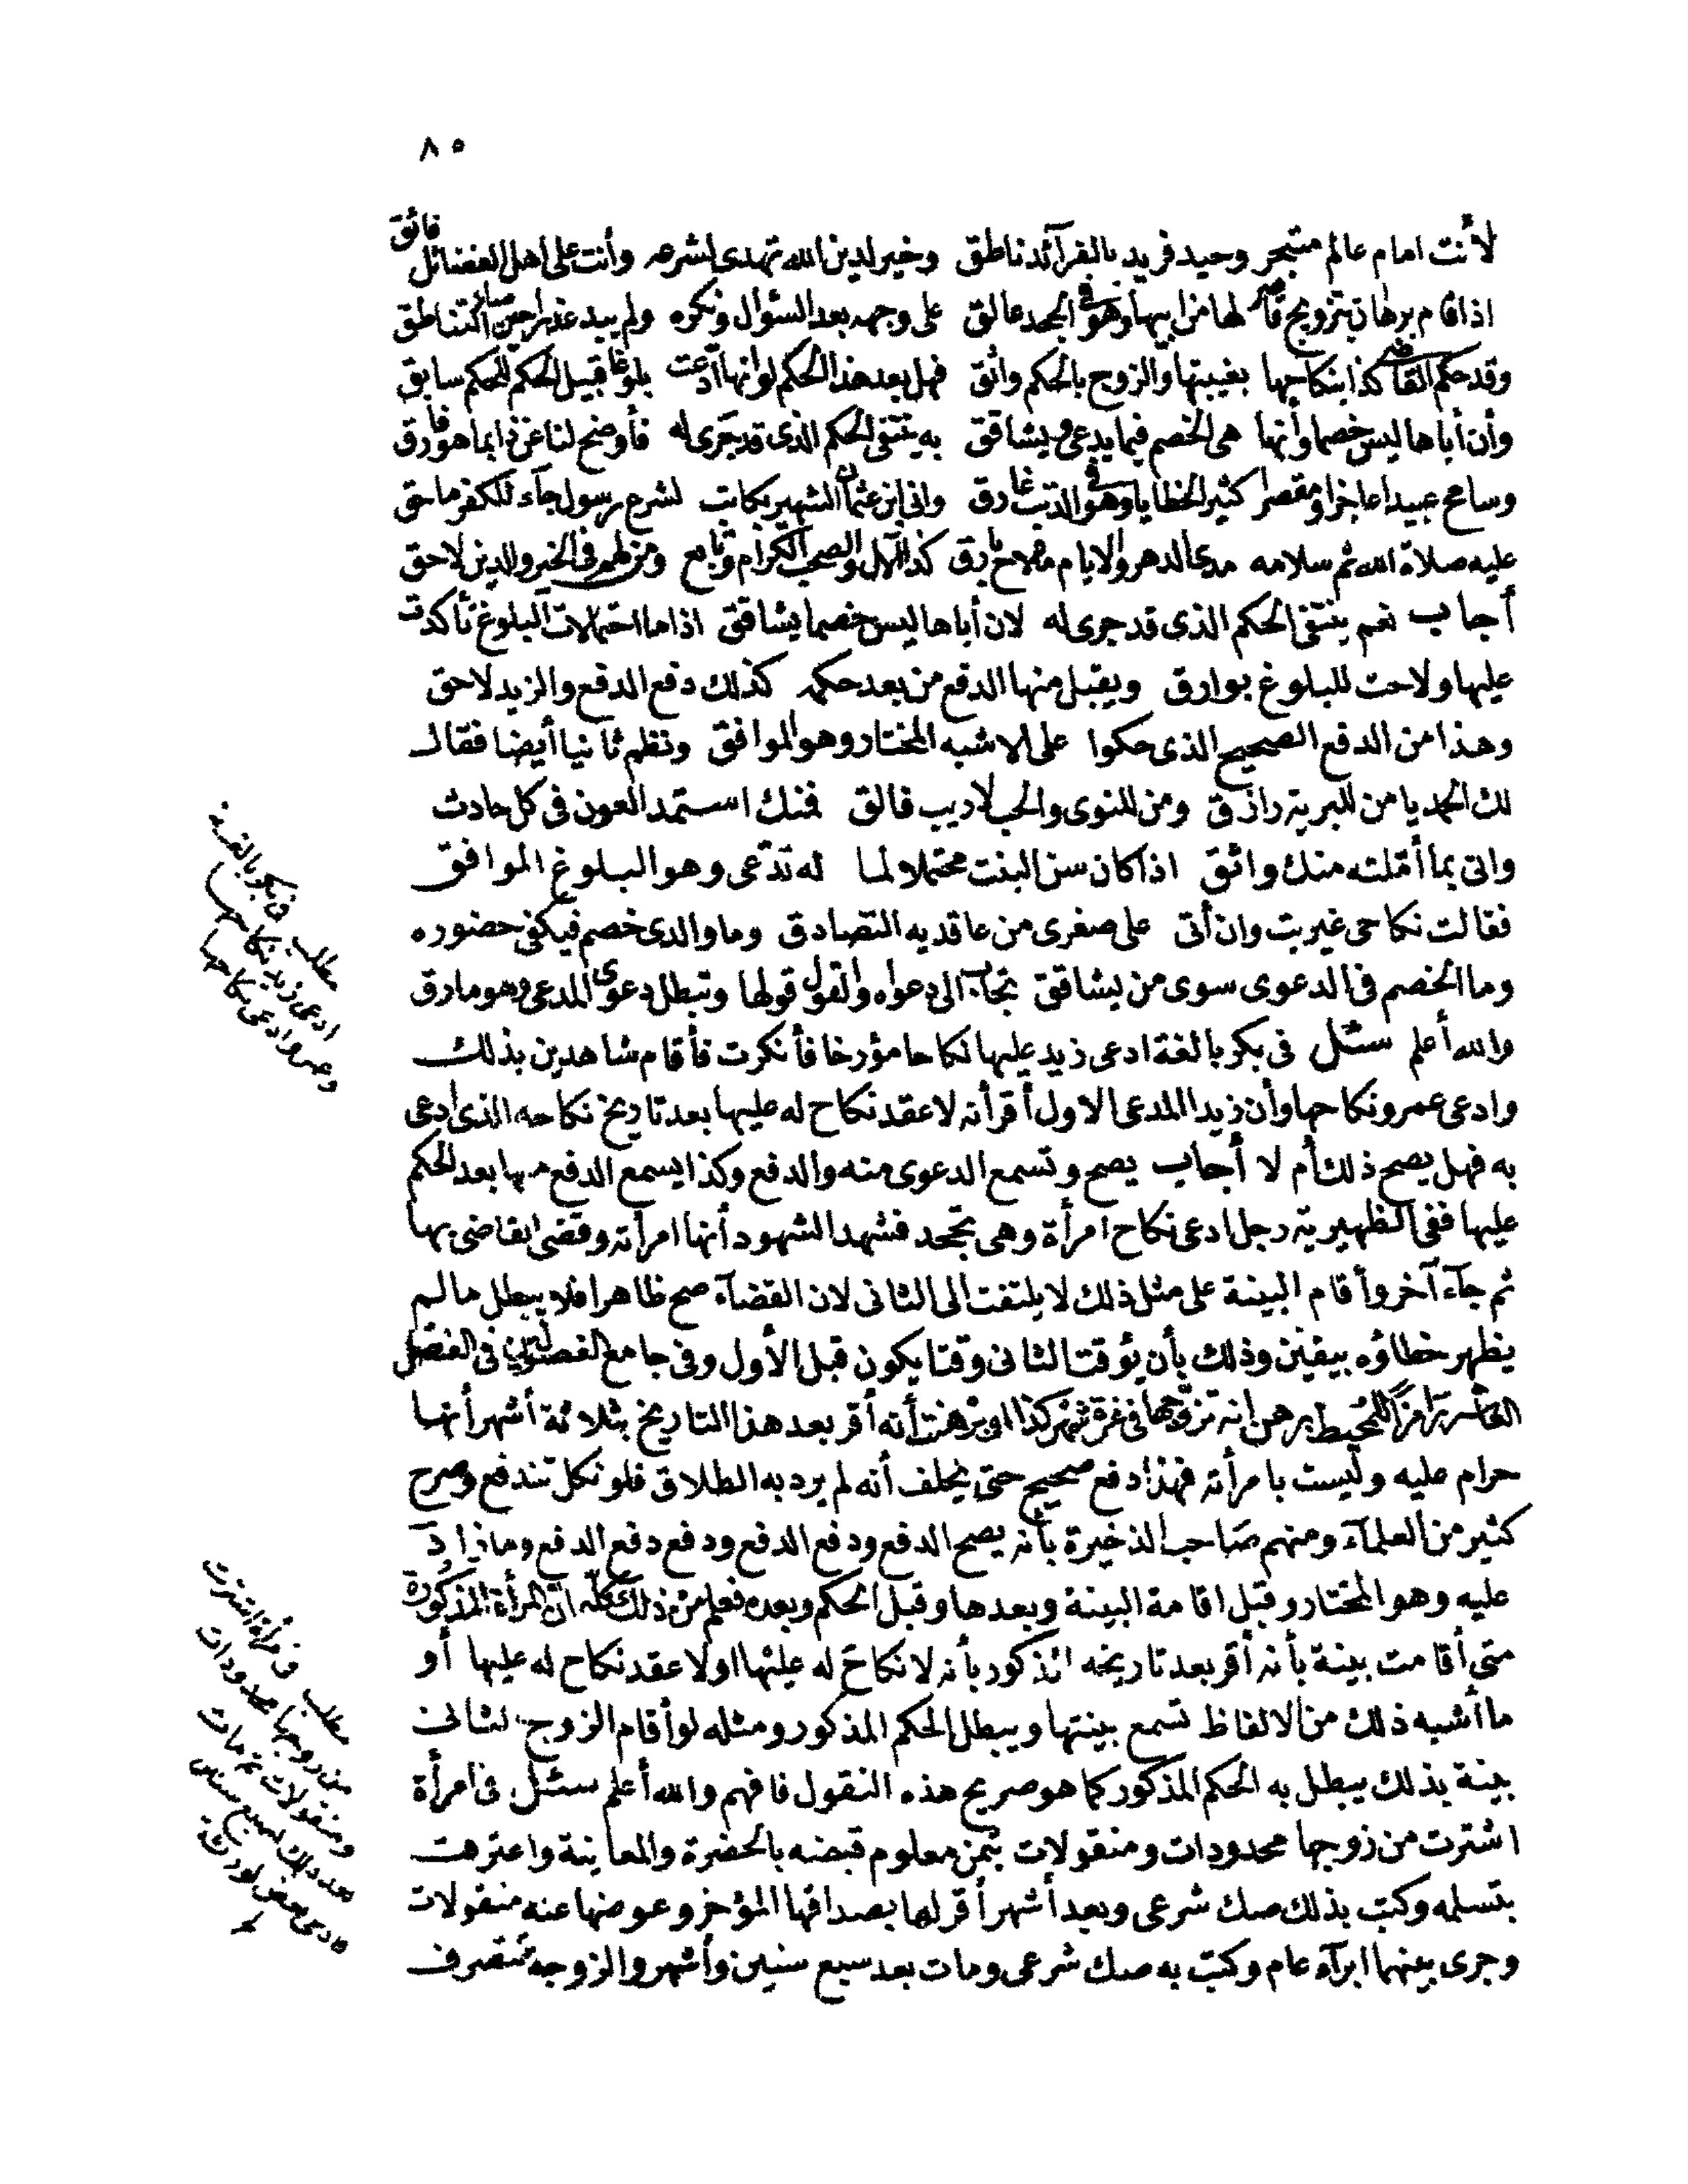 ٨٥
لأنت امام عالم متبحر وحيد فريد بالفرآئد ناطق وخير لدين الله تهدى لشرعه وأنت على اهل الفضائل فائق
اذا قام برهان بتزويج قاصر لها من ابيها وهو فى الجحد عالق على وجهه بعد السؤال ونكره ولم يبد عذرا حين
وقد حكم القاضى كذا بنكاحها بغيبتها والزوج بالحكم واثق فهل بعد هذا الحكم لو انها ادعت بلوغا قبيل الحكم للحكم سابق
وأن أباها ليس خصما وأنها هى الخصم فيما يدعى ويشاقق به ينتفى الحكم الذى قد جرى له فأوضح لنا عن ذا بما هو فارق
وسامح عبيدا عاجزا ومقصرا كثير الخطايا وهو فى الذنب غارق وانى ابن عثمان الشهير بكاتب لشرع رسول جآء للكفر ماحق
عليه صلاة الله ثم سلامه مدى الدهر والايام ما لاح بارق كذا الآل والصحب الكرام وتابع ومن لهم فى الخير والدين لاحق
أجاب نعم ينتفى الحكم الذى قد جرى له لان أباها ليس خصما يشاقق اذا ما احتمالات البلوغ تأكدت
عليها ولاحت للبلوغ بوارق ويقبل منها الدفع من بعد حكمه كذلك دفع الدفع والزيد لاحق
وهذا من الدفع الصحيح الذى حكوا على الاشبه المختار وهو الموافق ونظم ثانيا أيضا فقال
لك الحمد يا من للبرية رازق ومن للنوى والحب لا ريب فالق فمنك استمد العون فى كل حادث
وانى بما أملته منك واثق اذا كان سن البنت محتملا لما له تدّعى وهو البلوغ الموافق
فقالت نكاحى غير بت وان أتى على صغرى من عاقديه التصادق وما والدى خصم فيكفى حضوره
وما الخصم فى الدعوى سوى من يشاقق تجآب الى دعواه والقول قولها وتبطل دعوى المدعى وهو مارق
والله أعلم سئل فى بكر بالغة ادعى زيد عليها نكاحا مؤرخا فأنكرت فأقام شاهدين بذلك
وادعى عمرو نكاحها وأن زيدا المدعى الاول أقر أنه لا عقد نكاح له عليها بعد تاريخ نكاحه الذى ادعى
به فهل يصح ذلك أم لا أجاب يصح وتسمع الدعوى منه والدفع وكذا يسمع الدفع منها بعد الحكم
عليها ففى الظهيرية رجل ادعى نكاح امرأة وهى تجحد فشهد الشهود أنها امرأته وقضى القاضى بها
ثم جآء آخر وأقام البينة على مثل ذلك لا يلتفت الى الثانى لان القضآء صح ظاهرا فلا يبطل ما لم
يظهر خطاؤه بيقين وذلك بأن يؤقت الثانى وقتا يكون قبل الأول وفى جامع الفصولين فى الفصل
العاشر رامزا للمحيط برهن انه تزوجها فى غرة شهر كذا وبرهنت أنه أقر بعد هذا التاريخ بثلاثة أشهر أنها
حرام عليه وليست بامرأته فهذا دفع صحيح حتى يحلف أنه لم يرد به الطلاق فلو نكل تندفع وصرح
كثير من العلمآء ومنهم صاحب الذخيرة بأنه يصح الدفع ودفع الدفع ودفع دفع الدفع وما زاد
عليه وهو المختار وقبل اقامة البينة وبعدها وقبل الحكم وبعده فعلم من ذلك كله ان المرأة المذكورة
متى أقامت بينة بأنه أقر بعد تاريخه المذكور بأنه لا نكاح له عليها او لا عقد نكاح له عليها أو
ما أشبه ذلك من الالفاظ تسمع بينتها ويبطل الحكم المذكور ومثله لو أقام الزوج الثانى
بينة بذلك يبطل به الحكم المذكور كما هو صريح هذه النقول فافهم والله أعلم سئل فى امرأة
اشترت من زوجها محدودات ومنقولات بثمن معلوم قبضه بالحضرة والمعاينة واعترفت
بتسلمه وكتب بذلك صك شرعى وبعد أشهر أقر لها بصداقها المؤخر وعوضها عنه منقولات
وجرى بينهما ابرآء عام وكتب به صك شرعى ومات بعد سبع سنين وأشهر والزوجة تتصرف
مطلب فى بكر بالغة
ادعى زيد نكاحها
وعمرو ادعى نكاحها
مطلب فى امرأة اشترت
من زوجها محدودات
ومنقولات ثم مات
بعد ذلك بسبع سنين